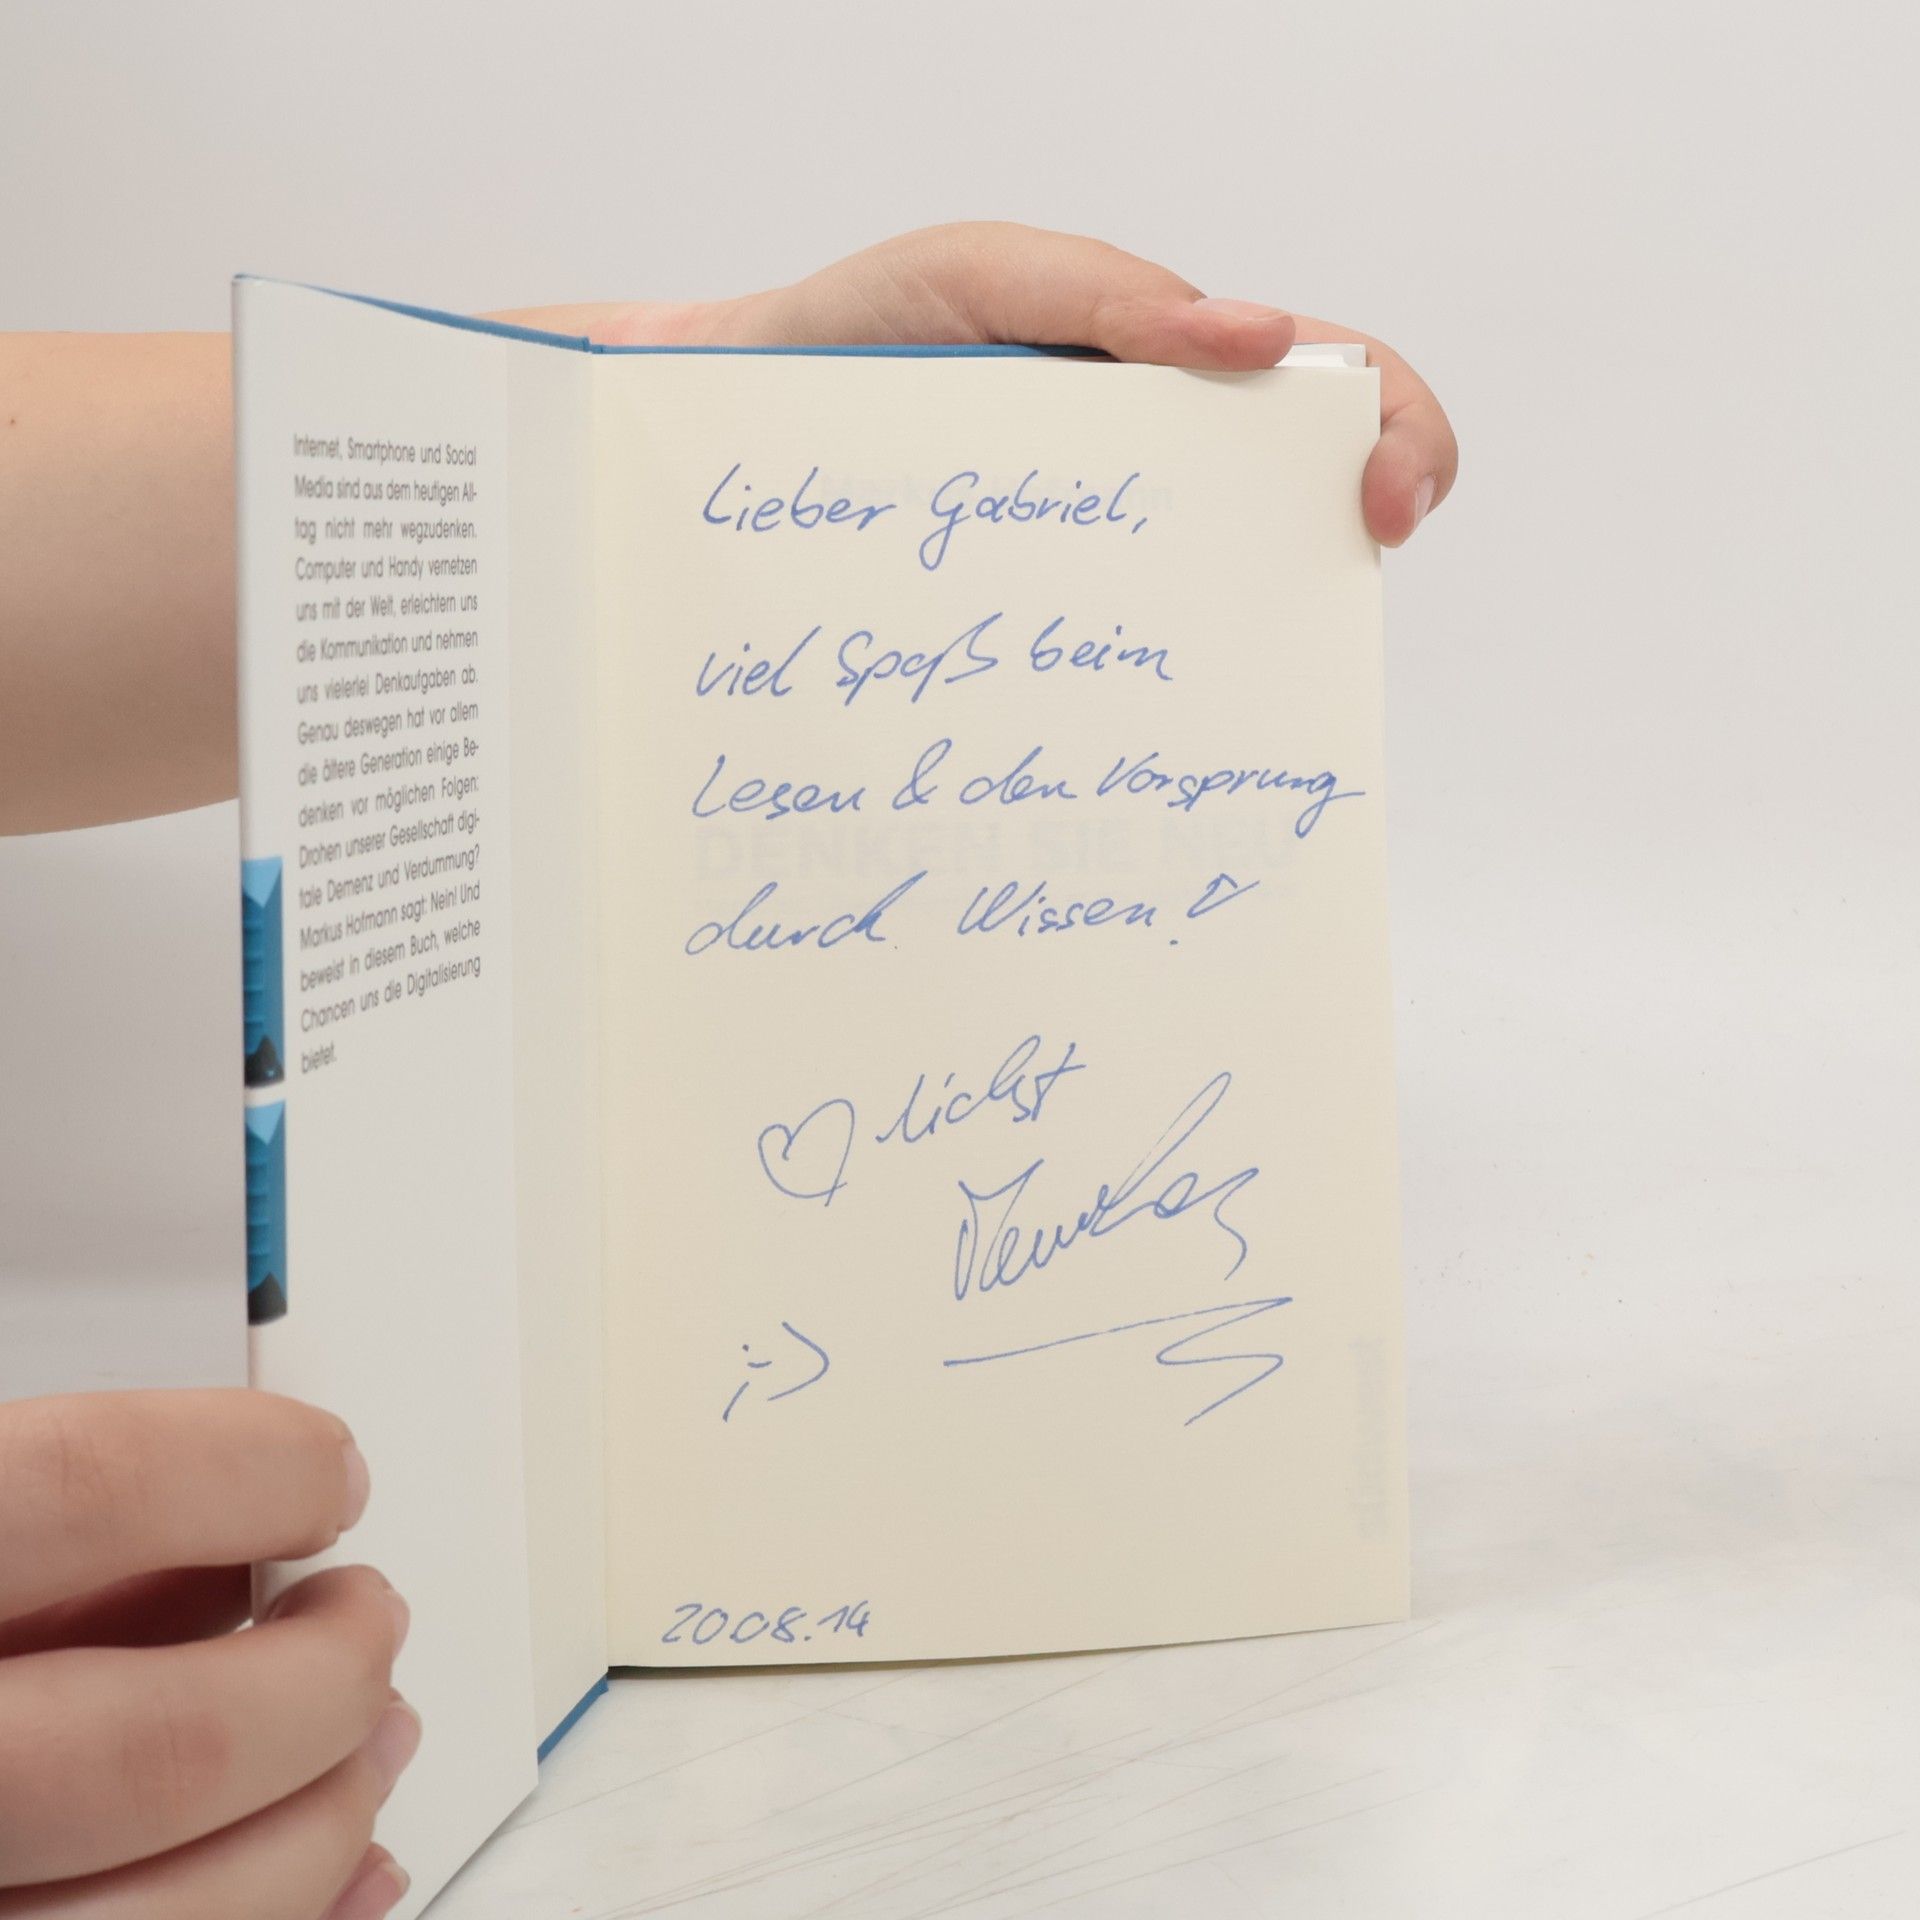 Internet, Smartphone und Social
Media sind aus dem heutigen All-
tag nicht mehr wegzudenken.
Computer und Handy vernetzen
uns mit der Welt, erleichtern uns
die Kommunikation und nehmen
uns vielerlei Denkaufgaben ab.
Genau deswegen hat vor allem
die ältere Generation einige Be-
denken vor möglichen Folgen:
Drohen unserer Gesellschaft digi-
tale Demenz und Verdummung?
Markus Hofmann sagt: Nein! Und
beweist in diesem Buch, welche
Chancen uns die Digitalisierung
bietet.
Lieber Gabriel,
viel Spaß beim
Lesen & den Vorsprung
durch Wissen!
♡lichst
Markus
;-)
20.08.14